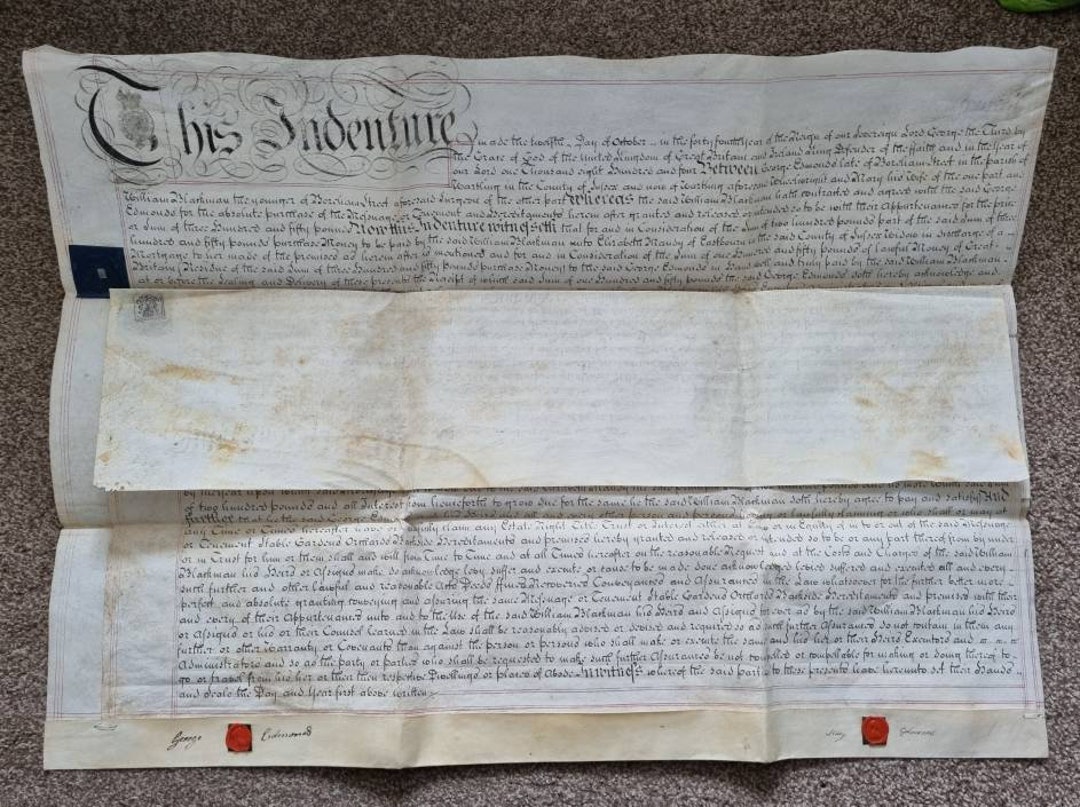 This Indenture made the twelfth Day of October in the forty fourth year of the Reign of our Sovereign Lord George the Third by
the Grace of God of the United Kingdom of Great Britain and Ireland King Defender of the ffaith and in the year of
our Lord one Thousand eight Hundred and four Between George Edmonds late of Boreham Street in the parish of
Wartling in the County of Sussex and now of Wartling aforesaid Wheelwright and Mary his Wife of the one part and
William Blackman the younger of Boreham Street aforesaid Surgeon of the other part Whereas the said William Blackman hath contracted and agreed with the said George
Edmonds for the absolute purchase of the Messuage or Tenement and Hereditaments herein after granted and released or intended so to be with their Appurtenances for the price
or Sum of three Hundred and fifty pounds Now this Indenture witnesseth that for and in Consideration of the Sum of two hundred pounds part of the said Sum of three
hundred and fifty pounds purchase Money to be paid by the said William Blackman unto Elizabeth of Eastbourn in the said County of Sussex Widow in discharge of a
Mortgage to her made of the premises as herein after is mentioned and for and in Consideration of the Sum of one Hundred and fifty pounds of lawful Money of Great
Britain Residue of the said Sum of three Hundred and fifty pounds purchase Money to the said George Edmonds in Hand well and truly paid by the said William Blackman
at or before the Sealing and Delivery of these presents the Receipt of which said Sum of one Hundred and fifty pounds the said George Edmonds doth hereby acknowledge and
of two hundred pounds and all Interest from henceforth to grow due for the same he the said William Blackman doth hereby agree to pay and satisfy And
further that he the said George
any Time or Times hereafter have or lawfully claim any Estate Right Title Trust or Interest either at Law or in Equity of in to or out of the said Messuage
or Tenement Stable Gardens Orchard Backside Hereditaments and premises hereby granted and released or intended so to be or any part thereof from by under
or in Trust for him or them shall and will from Time to Time and at all Times hereafter on the reasonable Request and at the Costs and Charges of the said William
Blackman his Heirs or Assigns make do acknowledge levy suffer and execute or cause to be made done acknowledged levied suffered and executed all and every
such further and other lawful and reasonable Acts Deeds ffines Recoveries Conveyances and Assurances in the Law whatsoever for the further better more
perfect and absolute granting conveying and assuring the same Messuage or Tenement Stable Gardens Orchard Backside Hereditaments and premises with their
and every of their Appurtenances unto and to the Use of the said William Blackman his Heirs and Assigns for ever as by the said William Blackman his Heirs
or Assigns or his or their Counsel learned in the Law shall be reasonably advised or devised and required so as such further Assurances do not contain in them any
further or other Warranty or Covenants than against the person or persons who shall make or execute the same and his her or their Heirs Executors and
Administrators and so as the party or parties who shall be requested to make such further Assurances be not compelled or compellable for making or doing thereof to
go or travel from his her or their then respective Dwellings or places of Abode In Witness whereof the said parties to these presents have hereunto set their Hands
and Seals the Day and Year first above written
George Edmonds
Mary Edmonds